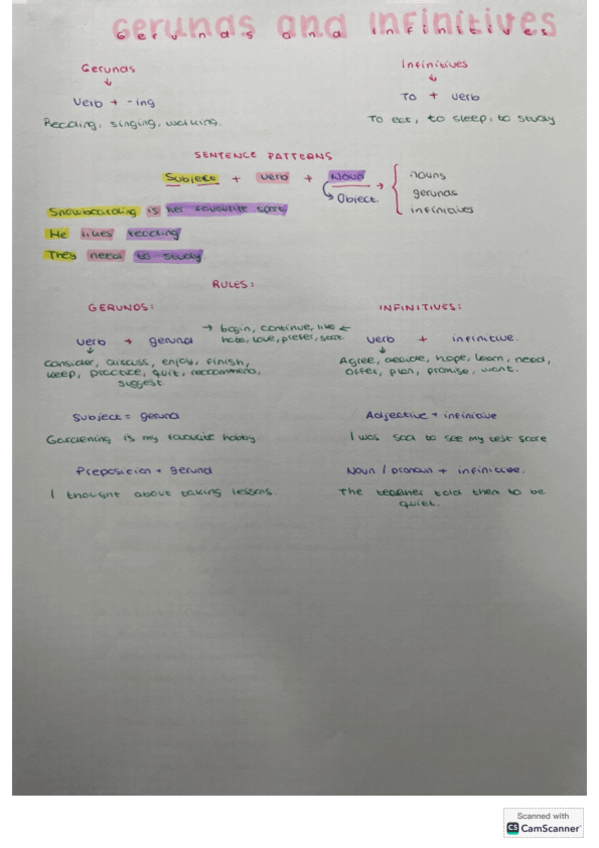 Gerunds and Infinitives
Gerunds and Infinitives
Gerunds
↓
Verb + -ing
Reading, singing, walking.
Infinitives
↓
To + verb
To eat, to sleep, to study
SENTENCE PATTERNS
Subject + verb + Noun → { nouns
Object gerunds
infinitives
Snowboarding is her favourite sport
He likes reading
They need to study
RULES:
GERUNDS:
verb + gerund
consider, discuss, enjoy, finish,
keep, practice, quit, recommend,
suggest.
→ begin, continue, like ←
hate, love, prefer, start
INFINITIVES:
verb + infinitive.
Agree, decide, hope, learn, need,
offer, plan, promise, want.
Subject = gerund
Gardening is my favourite hobby.
Adjective + infinitive
I was sad to see my test score
Preposition + gerund
I thought about taking lessons.
Noun / pronoun + infinitive.
The teacher told them to be
quiet.
Scanned with
CS CamScanner